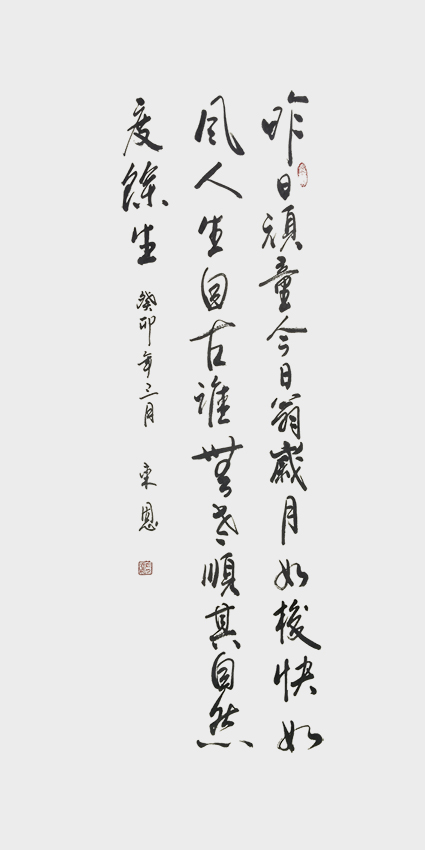 昨日頑童今日翁歲月如梭快如
風人生自古誰無老順其自然
度餘生
癸卯年三月 東恩